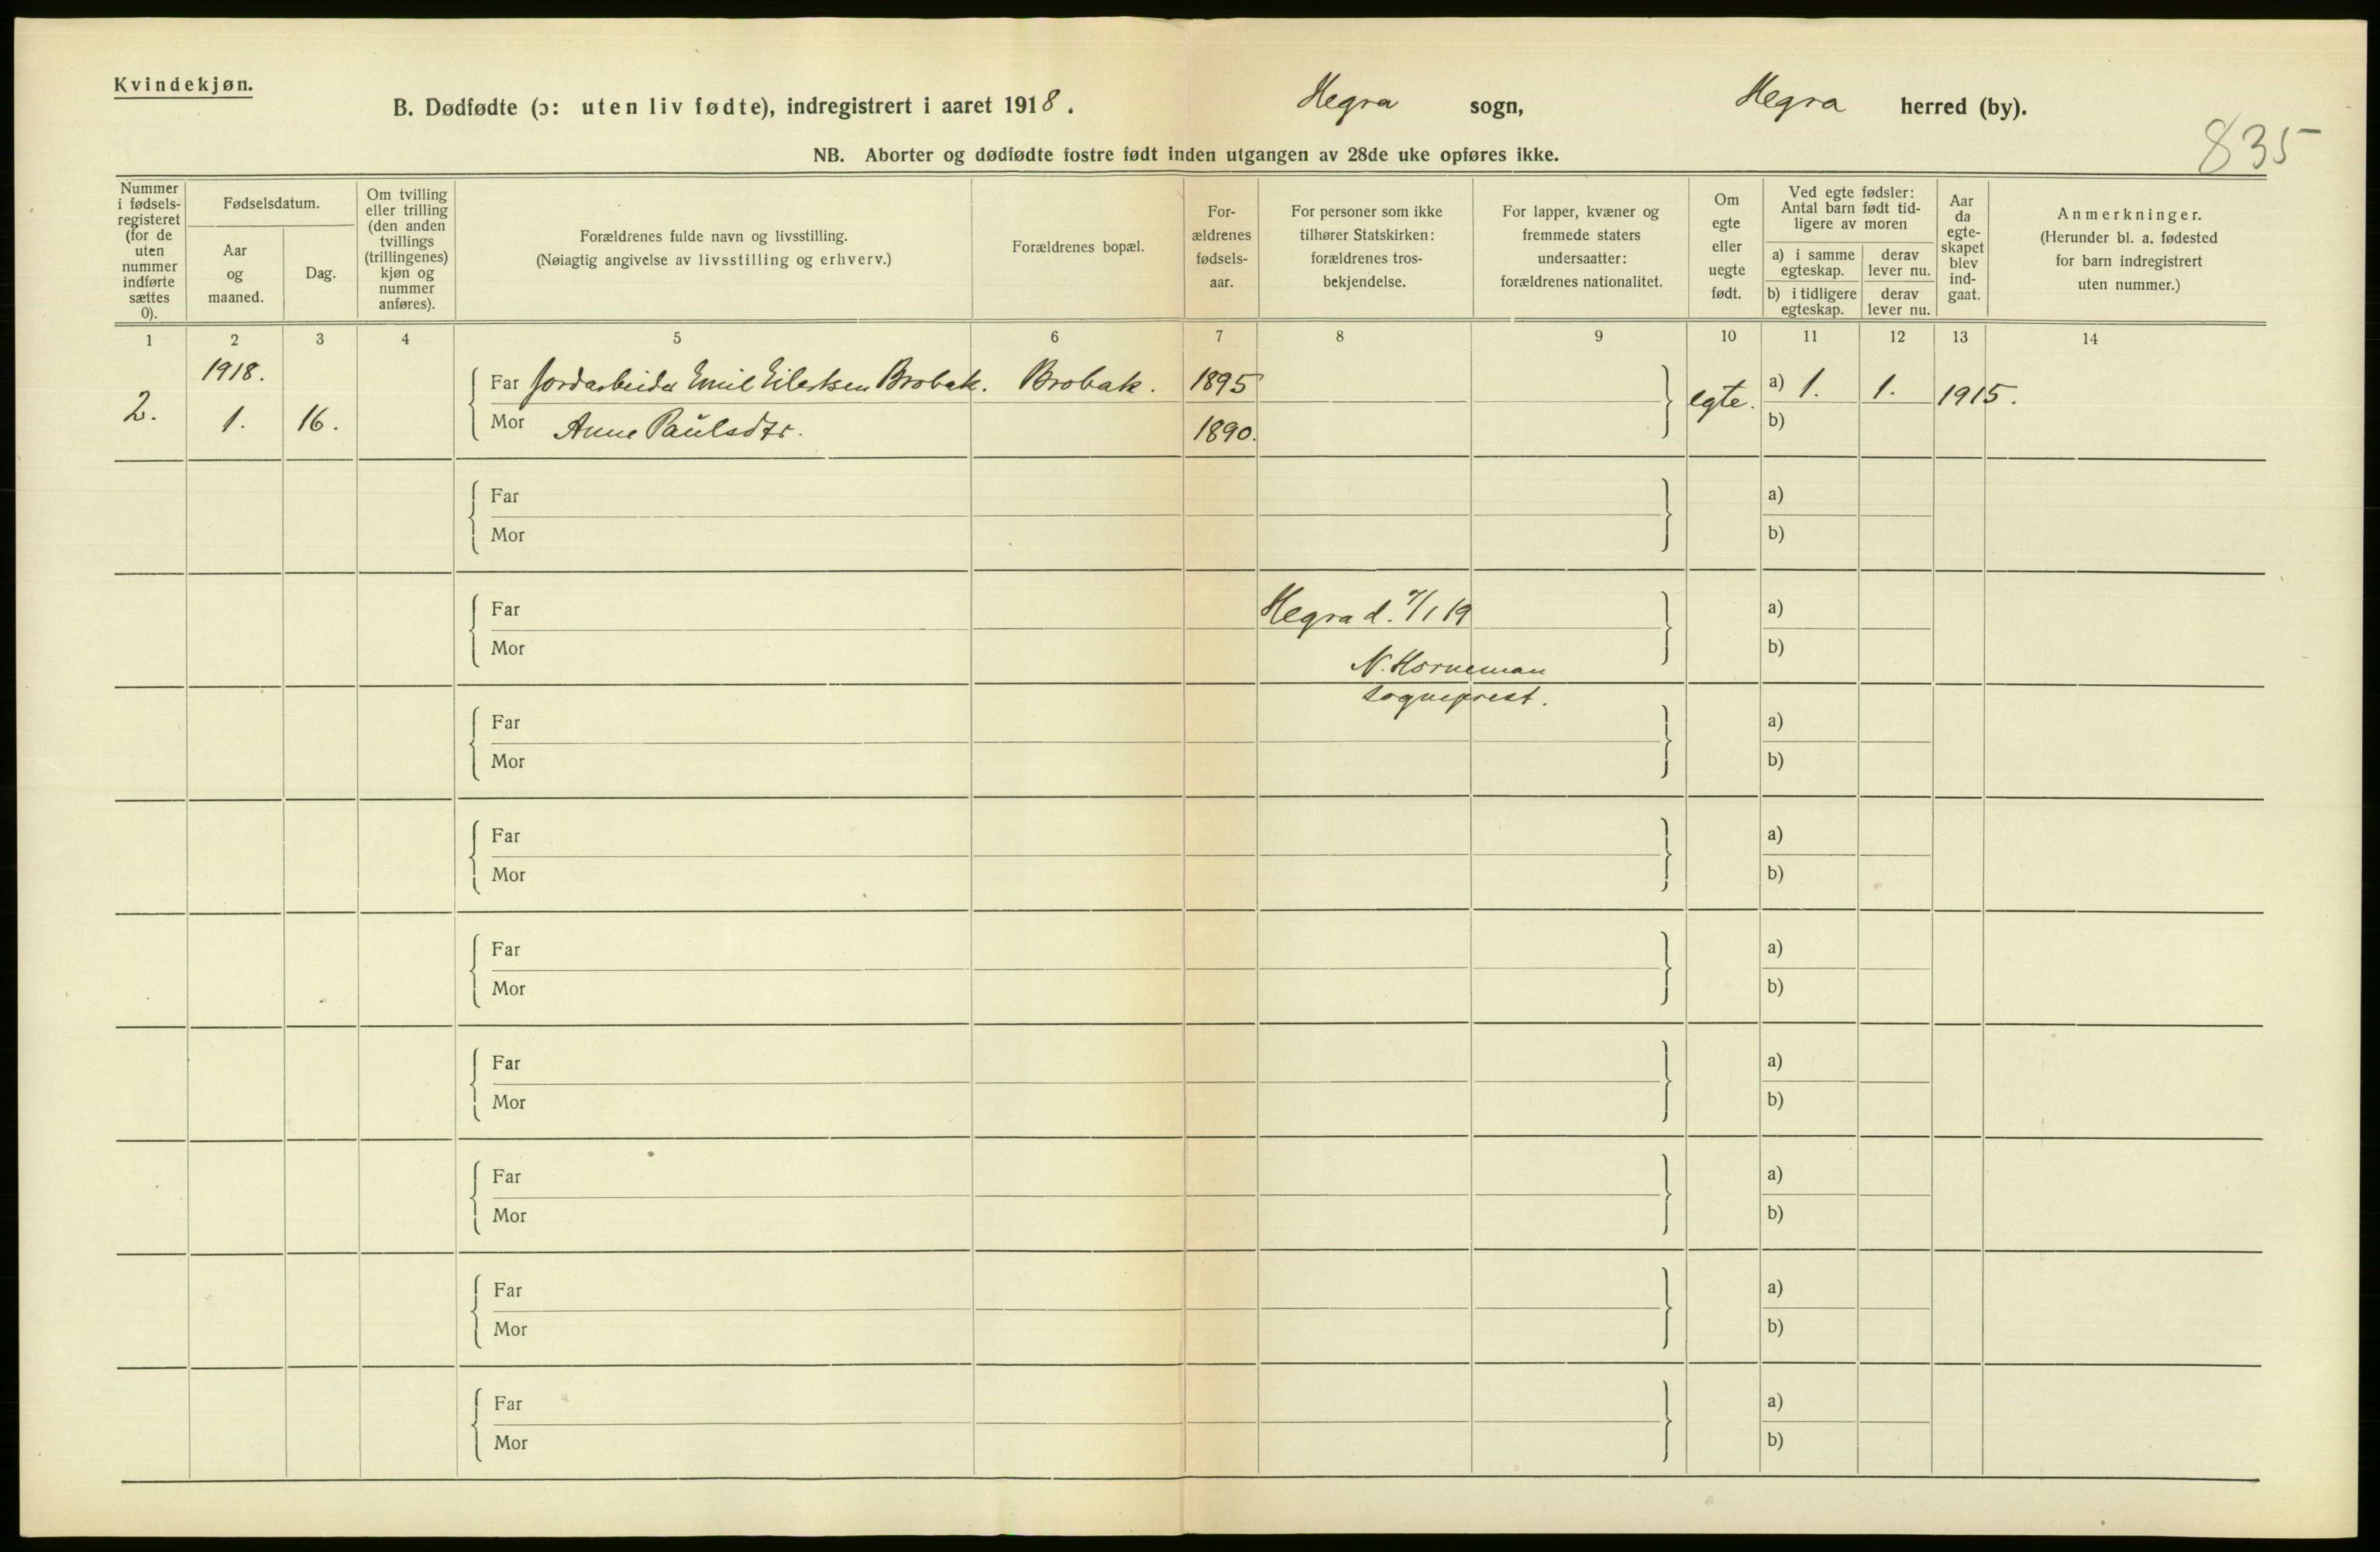 Kvindekjøn.
B. Dødfødte (ɔ: uten liv fødte), indregistrert i aaret 1918. Hegra sogn, Hegra herred (by).
835
NB. Aborter og dødfødte fostre født inden utgangen av 28de uke opføres ikke.
Nummer i fødsels- registeret (for de uten nummer indførte sættes 0).
Fødselsdatum.
Aar og maaned.
Dag.
Om tvilling eller trilling (den anden tvillings (trillingenes) kjøn og nummer anføres).
Forældrenes fulde navn og livsstilling.
(Nøiagtig angivelse av livsstilling og erhverv.)
Forældrenes bopæl.
For- ældrenes fødsels- aar.
For personer som ikke tilhører Statskirken: forældrenes tros- bekjendelse.
For lapper, kvæner og fremmede staters undersaatter: forældrenes nationalitet.
Om egte eller uegte født.
Ved egte fødsler: Antal barn født tid- ligere av moren
a) i samme egteskap.
derav lever nu.
b) i tidligere egteskap.
derav lever nu.
Aar da egte- skapet blev ind- gaat.
Anmerkninger.
(Herunder bl. a. fødested for barn indregistrert uten nummer.)
1 2 3 4 5 6 7 8 9 10 11 12 13 14
1918.
2. 1. 16.
Far Jordarbeider Emil Eilertsen Brobak. Brobak. 1895
egte. a) 1. 1. 1915.
Mor Anne Paulsdtr. 1890. b)
Far a)
Mor b)
Far Hegra d. 7/1 19 a)
Mor b)
N. Horneman
sogneprest.
Far a)
Mor b)
Far a)
Mor b)
Far a)
Mor b)
Far a)
Mor b)
Far a)
Mor b)
Far a)
Mor b)
Far a)
Mor b)